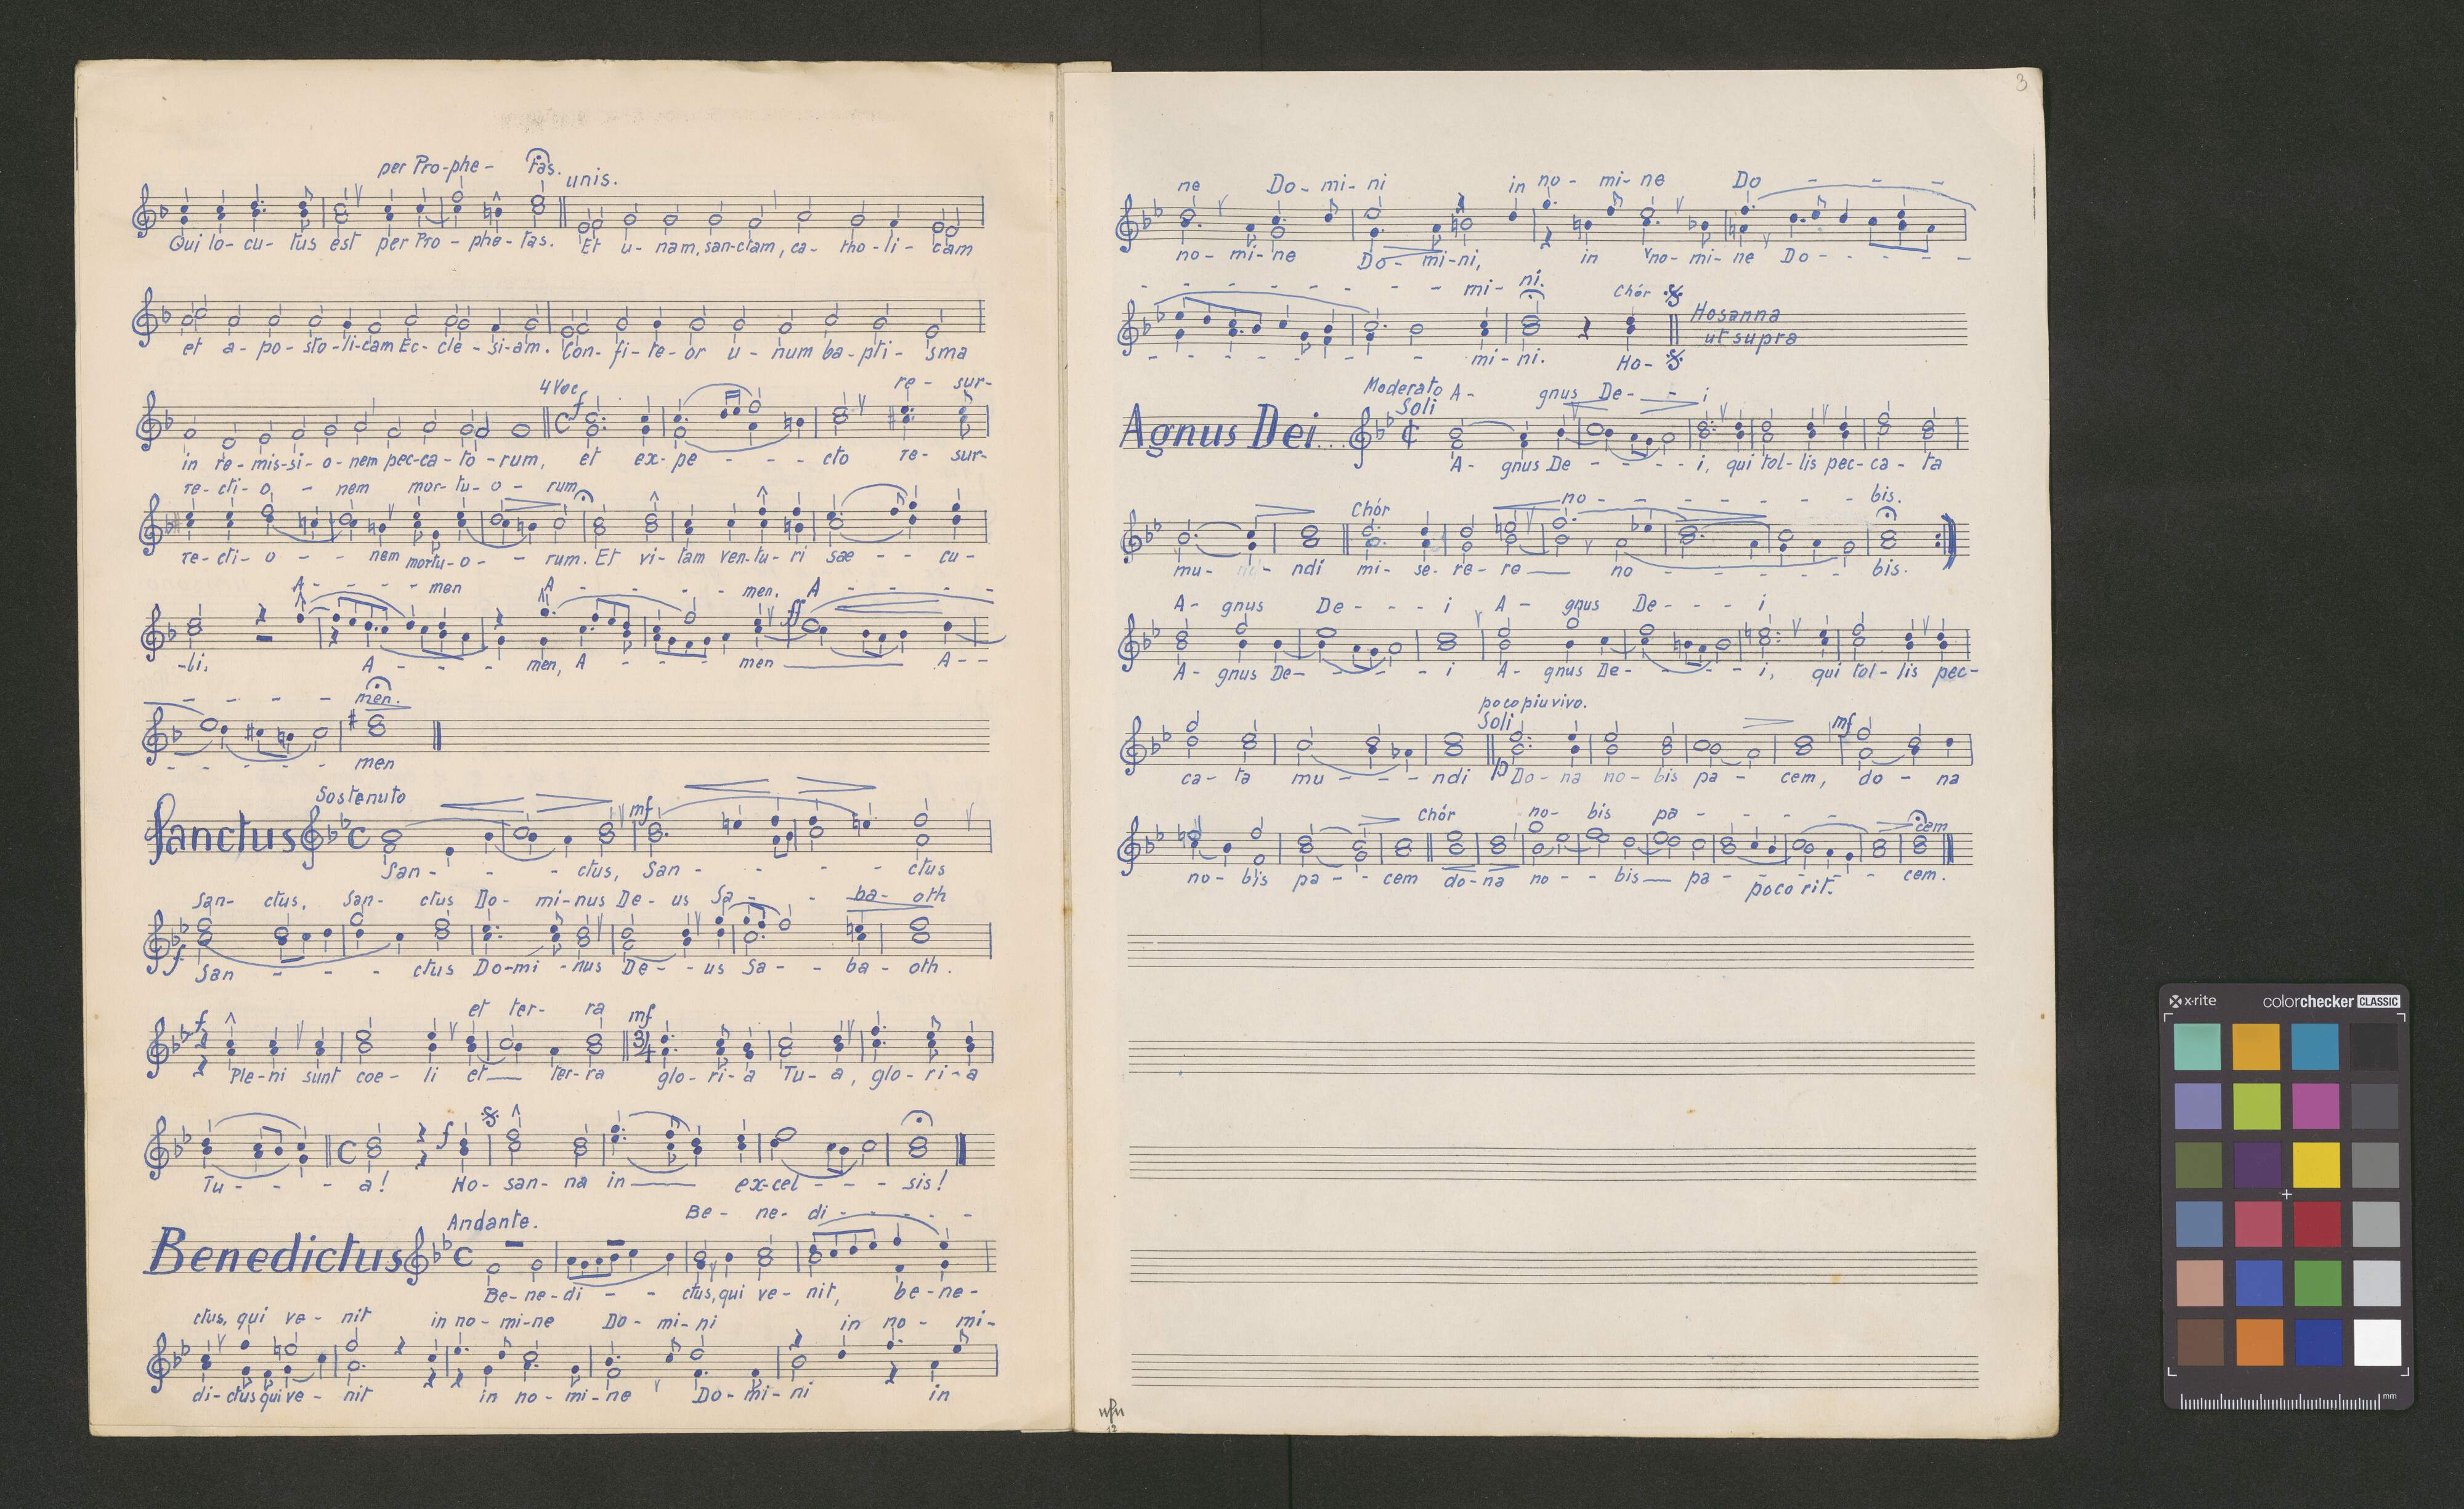 per Pro-phe- tas. unis.
Qui lo- cu- tus est per Pro- phe- tas. Et u- nam, san-ctam, ca- tho- li- cam
et a- po- sto- li-cam Ec- cle- si-am. Con- fi- te- or u- num ba- pti- sma
4 Voc. f re- sur-
in re- mis-si- o- nem pec-ca- to- rum, et ex- pe - - - cto re- sur-
re- cti- o - nem mor- tu- o- rum
re- cti- o - - nem mortu- o - - rum. Et vi- tam ven- tu- ri sae - - cu-
A - - - - men A - - - - men. A - - - -
ff
-li. A - - - - men, A - - - - men A - -
- - - - men.
- - - - - men
Sostenuto
mf
Sanctus C
San - - - ctus, San - - - - ctus
San- ctus, San- ctus Do- mi-nus De- us Sa - - ba- oth
f San - - - ctus Do-mi-nus De- - us Sa- - ba- oth.
f et ter- ra mf
3/4
Ple-ni sunt coe- li et ter-ra glo- ri- a Tu- a, glo- ri- a
C f
Tu - - - a! Ho- san- na in ex-cel - - - sis!
Andante. Be- ne- di - - - -
Benedictus C
Be- ne- di - - ctus, qui ve- nit, be- ne-
ctus, qui ve- nit in no- mi-ne Do- mi- ni in no- mi-
di- ctus qui ve- nit in no- mi- ne Do- mi- ni in
3
ne Do- mi- ni in no- mi- ne Do - - -
no- mi- ne Do- mi-ni, in no- mi- ne Do - - - -
- - - - - - - - mi- ni. Chór
Hosanna
ut supra
- - - - - - mi- ni. Ho-
Moderato A- gnus De- - - i
Soli
Agnus Dei...
A- gnus De - - - - i, qui tol- lis pec- ca- ta
Chór no - - - - - - - bis.
mu- - ndi mi- se- re- re no - - - - - bis.
A- gnus De - - - i A- gnus De - - - i
A- gnus De- - - - i A- gnus De- - - - i, qui tol- lis pec-
poco piu vivo.
Soli mf
ca- ta mu - - - ndi p Do- na no- bis pa- cem, do- na
Chór no- bis pa - - - - cem
no- bis pa - - cem do- na no - - bis pa - - - - - cem.
poco rit.
12
x-rite colorchecker CLASSIC
mm